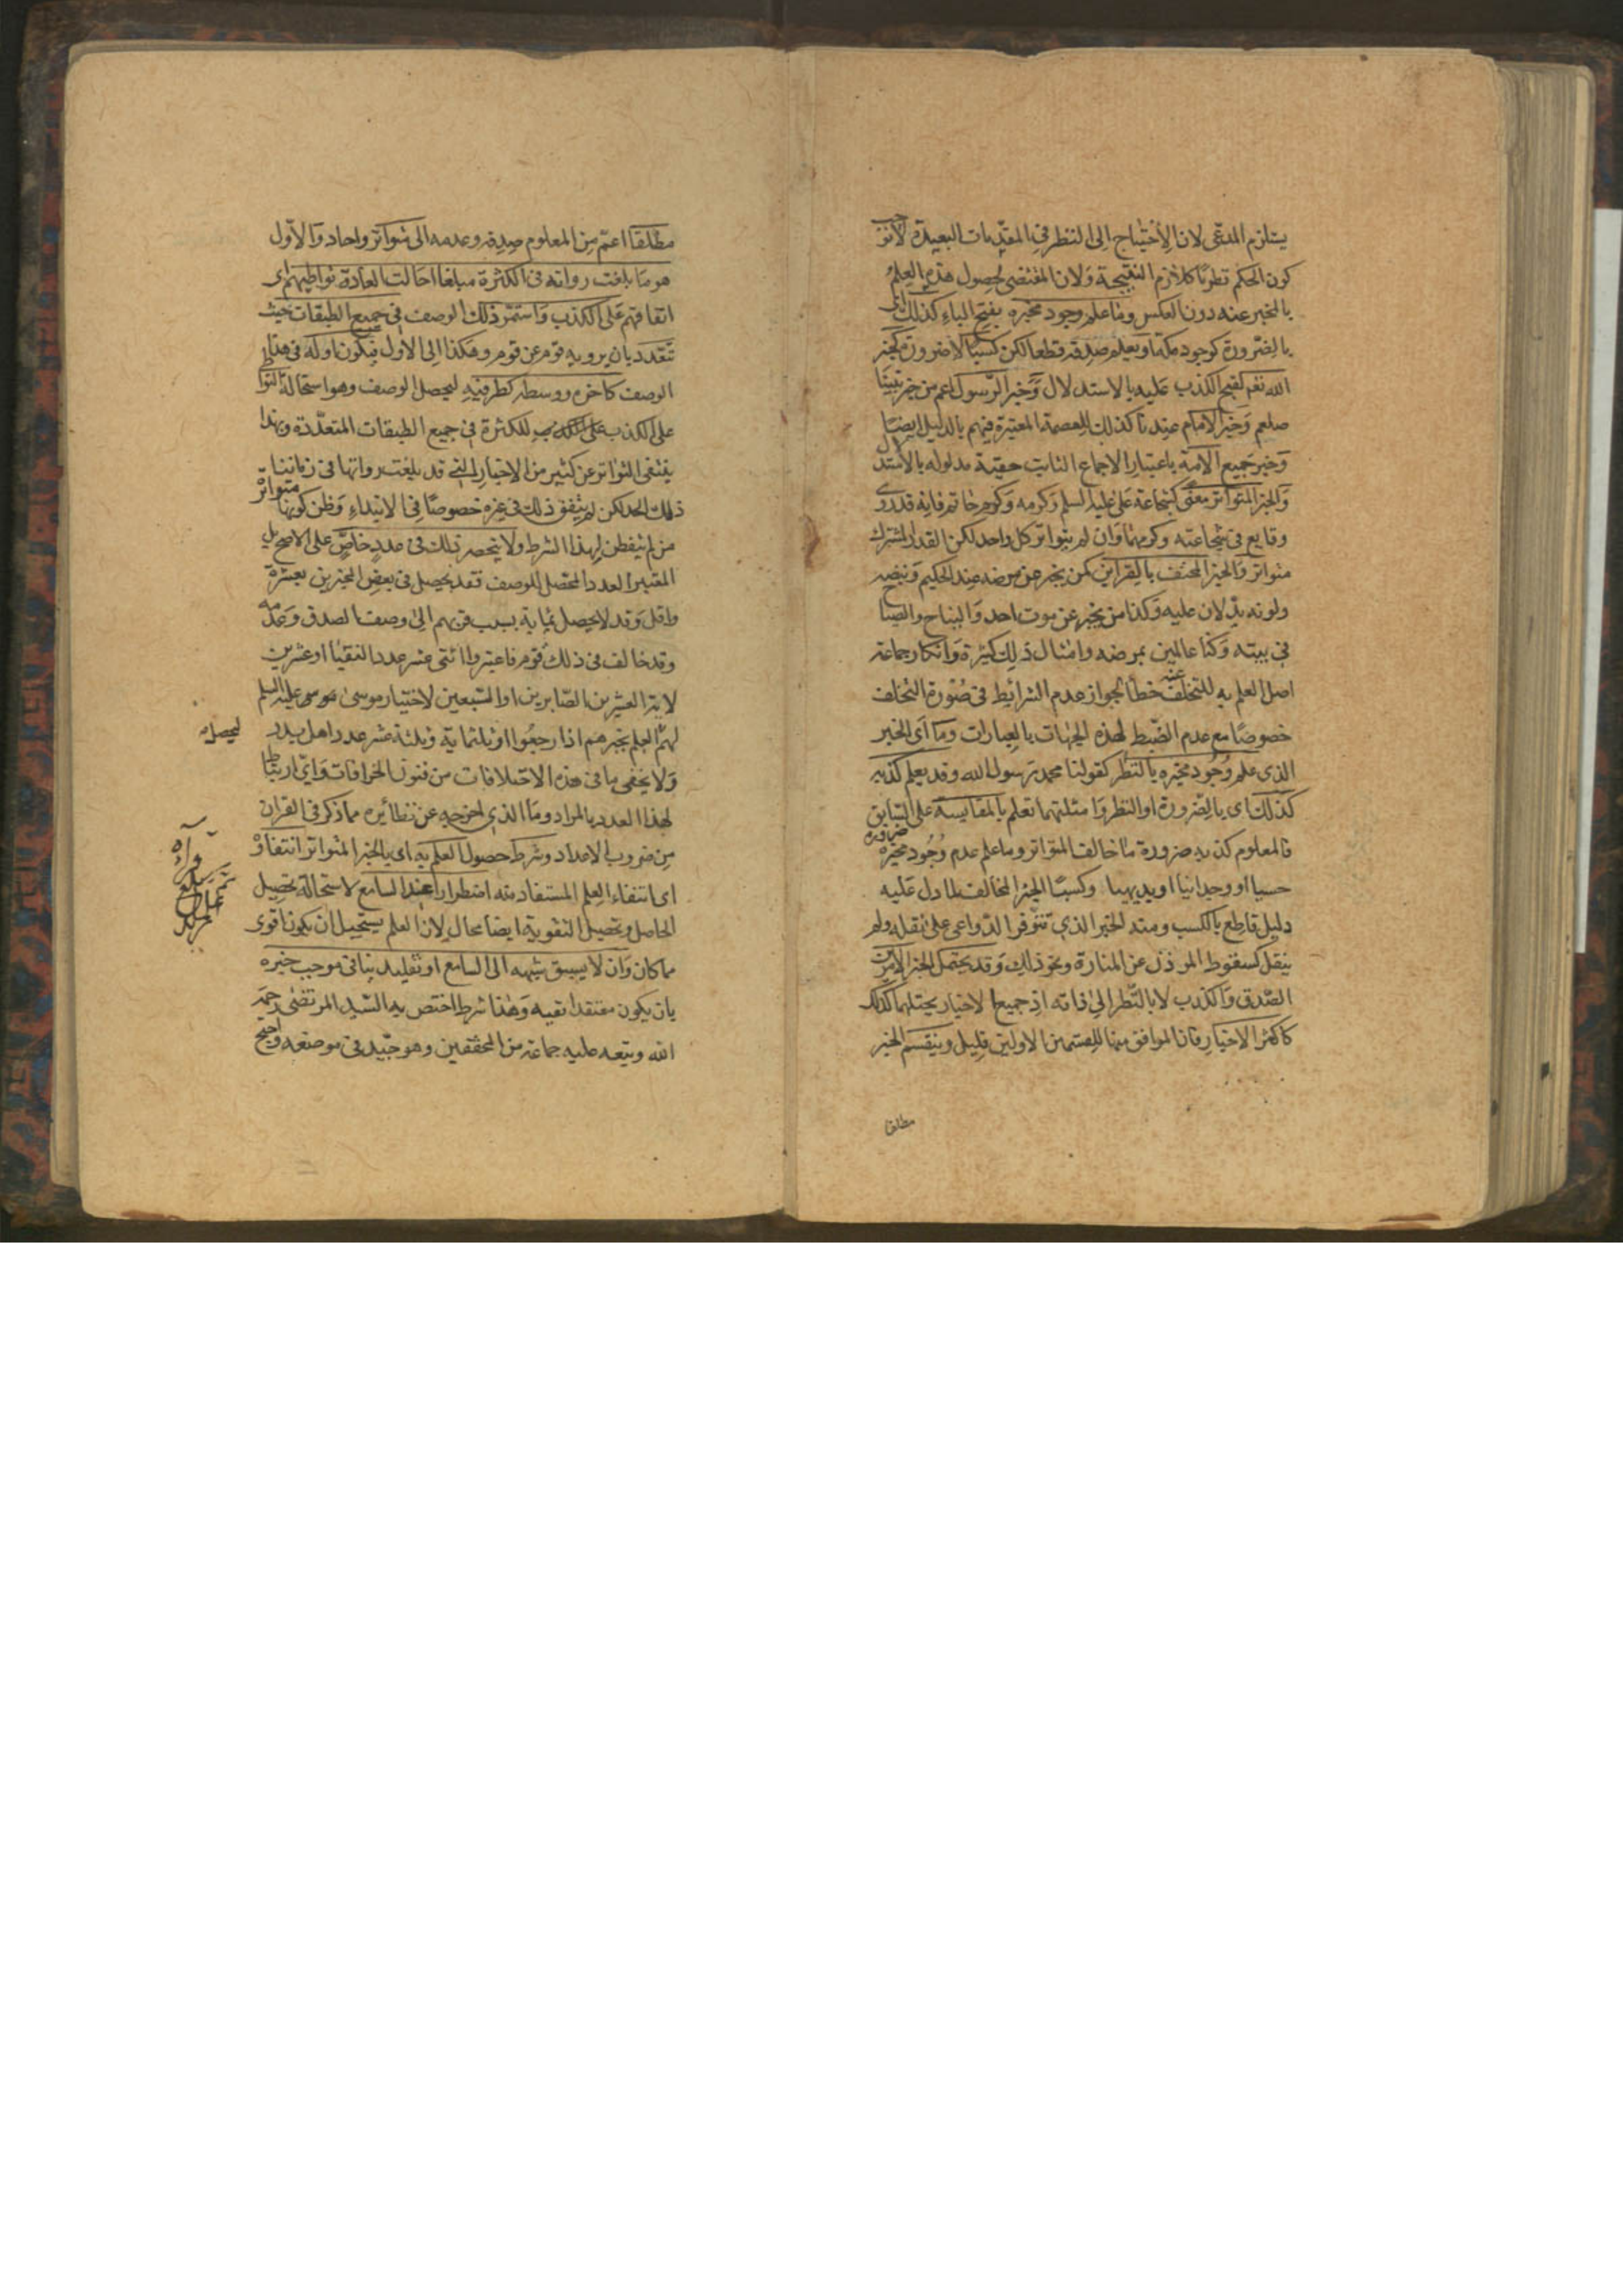 يستلزم المدعى لان الاحتياج الى النظر في المقدمات البعيدة لا توجب
كون الحكم نظريا كلازم النتيجة ولان المقتضى لحصول هذا العلم
بالخبر عنه دون العكس وما علم وجود مخبره بفتح الباء كذلك اى
بالضرورة كوجود مكة او يعلم صدقه قطعا لكن كسبيا لا ضرورة كخبر
الله تعم لقبح الكذب عليه بالاستدلال وخبر الرسول اعم من خبر نبينا
صلعم وخبر الامام عندنا كذلك للعصمة المعتبرة فيهم بالدليل ايضا
وخبر جميع الامة باعتبار الاجماع الثابت حقية مدلوله بالاستدلال
والخبر المتواتر معنى كشجاعة على عليه السلم وكرمه وكرم حاتم فانه قد روى
وقايع فى شجاعته وكرمهما وان لم يتواتر كل واحد لكن القدر المشترك
متواتر والخبر المحتف بالقراين كمن يخبر عن مرضه عند الحكيم ونبضه
ولونه يدلان عليه وكذا من يخبر عن موت احد والنياح والصياح
فى بيته وكنا عالمين بمرضه وامثال ذلك كثيرة وانكار جماعة
اصل العلم به للتخلف عنه خطأ لجواز عدم الشرائط فى صورة التخلف
خصوصا مع عدم الضبط لهذه الجهات بالعبارات وما اى الخبر
الذى علم وجود مخبره بالنظر كقولنا محمد رسول الله وقد يعلم كذبه
كذلك اى بالضرورة او النظر وامثلتهما تعلم بالمقايسة على السابق
فالمعلوم كذبه ضرورة ما خالف المتواتر وما علم عدم وجود مخبره ضرورة
حسيا او وجدانيا او بديهيا وكسبيا الخبر المخالف لما دل عليه
دليل قاطع بالكسب ومنه الخبر الذى تتوفر الدواعى على نقله ولم
ينقل كسقوط المؤذن عن المنارة ونحو ذلك وقد يحتمل الخبر الامرين
الصدق والكذب لا بالنظر الى ذاته اذ جميع الاخبار يحتملهما كذلك
كاكثر الاخبار فان الموافق منها للقسمين الاولين قليل وينقسم الخبر
مطلقا
مطلقا اعم من المعلوم صدقه وعدمه الى متواتر واحاد والاول
هو ما بلغت رواته فى الكثرة مبلغا احالت العادة تواطيهم اى
اتفاقهم على الكذب واستمر ذلك الوصف فى جميع الطبقات حيث
تتعدد بان يرويه قوم عن قوم وهكذا الى الاول فيكون اوله فى هذا
الوصف كاخره ووسطه كطرفيه ليحصل الوصف وهو استحالة التواطى
على الكذب للكثرة فى جميع الطبقات المتعددة وبهذا
ينتفى التواتر عن كثير من الاخبار التى قد بلغت رواتها فى زماننا
ذلك الحد لكن لم يتفق ذلك فى غيره خصوصا فى الابتداء وظن كونها متواترة
من لم يتفطن لهذا الشرط ولا ينحصر ذلك فى عدد خاص على الاصح بل
المعتبر العدد المحصل للوصف فقد يحصل فى بعض المخبرين بعشرة
واقل وقد لا يحصل بمائة بسبب قربهم الى وصف الصدق وعدمه
وقد خالف فى ذلك قوم فاعتبروا اثنى عشر عدد النقباء او عشرين
لاية العشرين الصابرين او السبعين لاختيار موسى عليه السلم
لهم العلم بخبرهم اذا رجعوا او ثلثماية وثلثة عشر عدد اهل بدر
ليحصل
ولا يخفى ما فى هذه الاختلافات من فنون الخرافات واى ارتباط
لهذا العدد بالمراد وما الذى اخرجه عن نظائره مما ذكر فى القران
من ضروب الاعداد وشرط حصول العلم به اى بالخبر المتواتر انتفاؤه
اى انتفاء العلم المستفاد منه اضطرارا عند السامع لاستحالة تحصيل
الحاصل وتحصيل التقوية ايضا محال لان العلم يستحيل ان يكون اقوى
مما كان وان لا يسبق شبهة الى السامع او تقليد ينافى موجب خبره
بان يكون معتقدا نفيه وهذا شرط اختص به السيد المرتضى رحمه
الله وتبعه عليه جماعة من المحققين وهو جيد فى موضعه واحتج